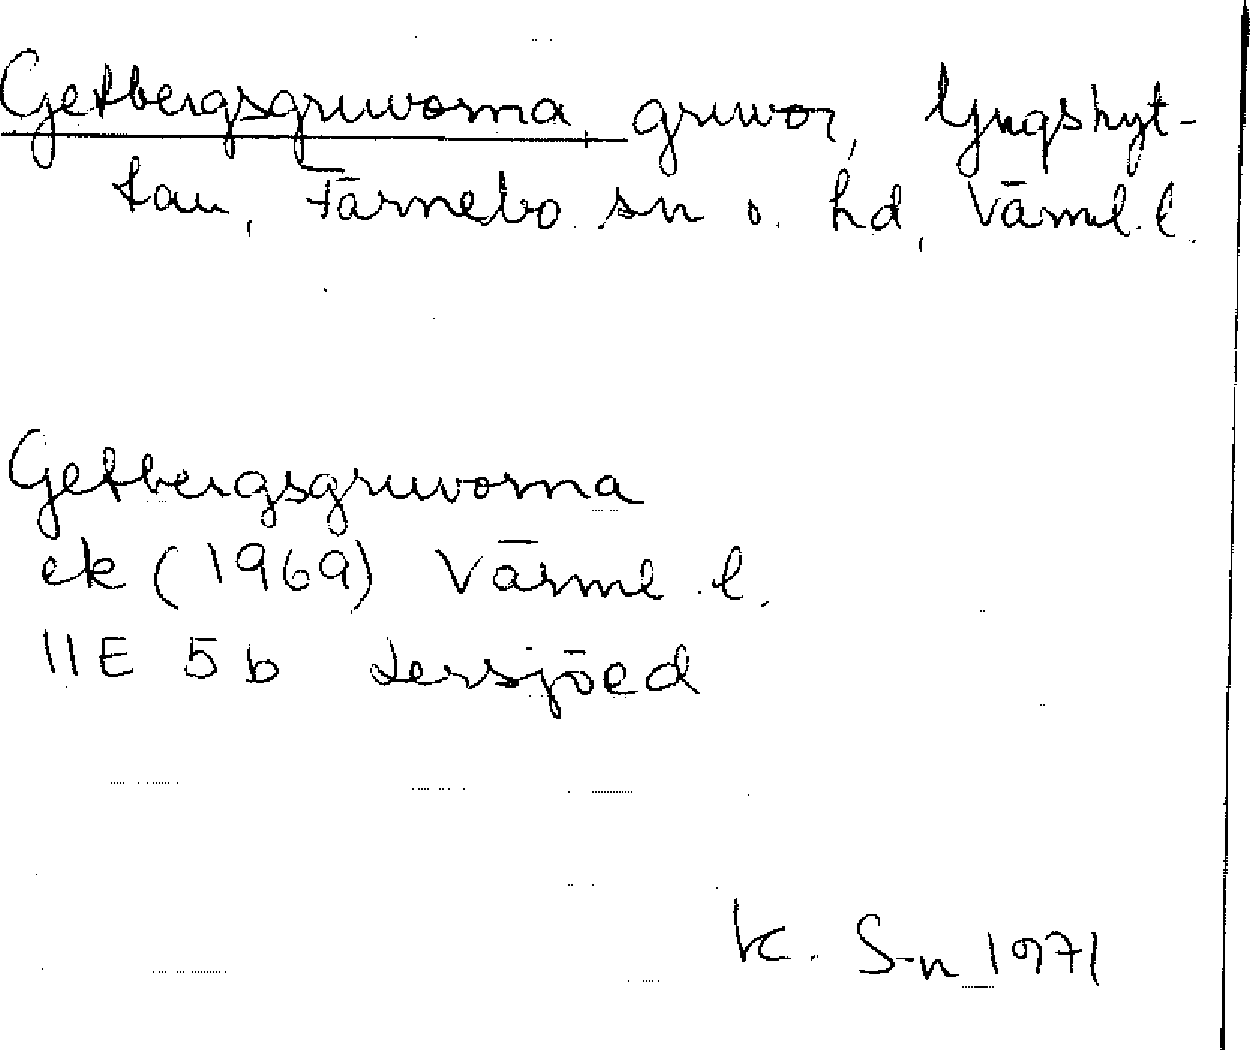 Getbergsgruvorna gruvor, Ljugshyt-
tan, Färnebo sn o. hd, Värml. l.
Getbergsgruvorna
ek (1969) Värml. l.
11E 5b Lersjöed
K. S-n 1971